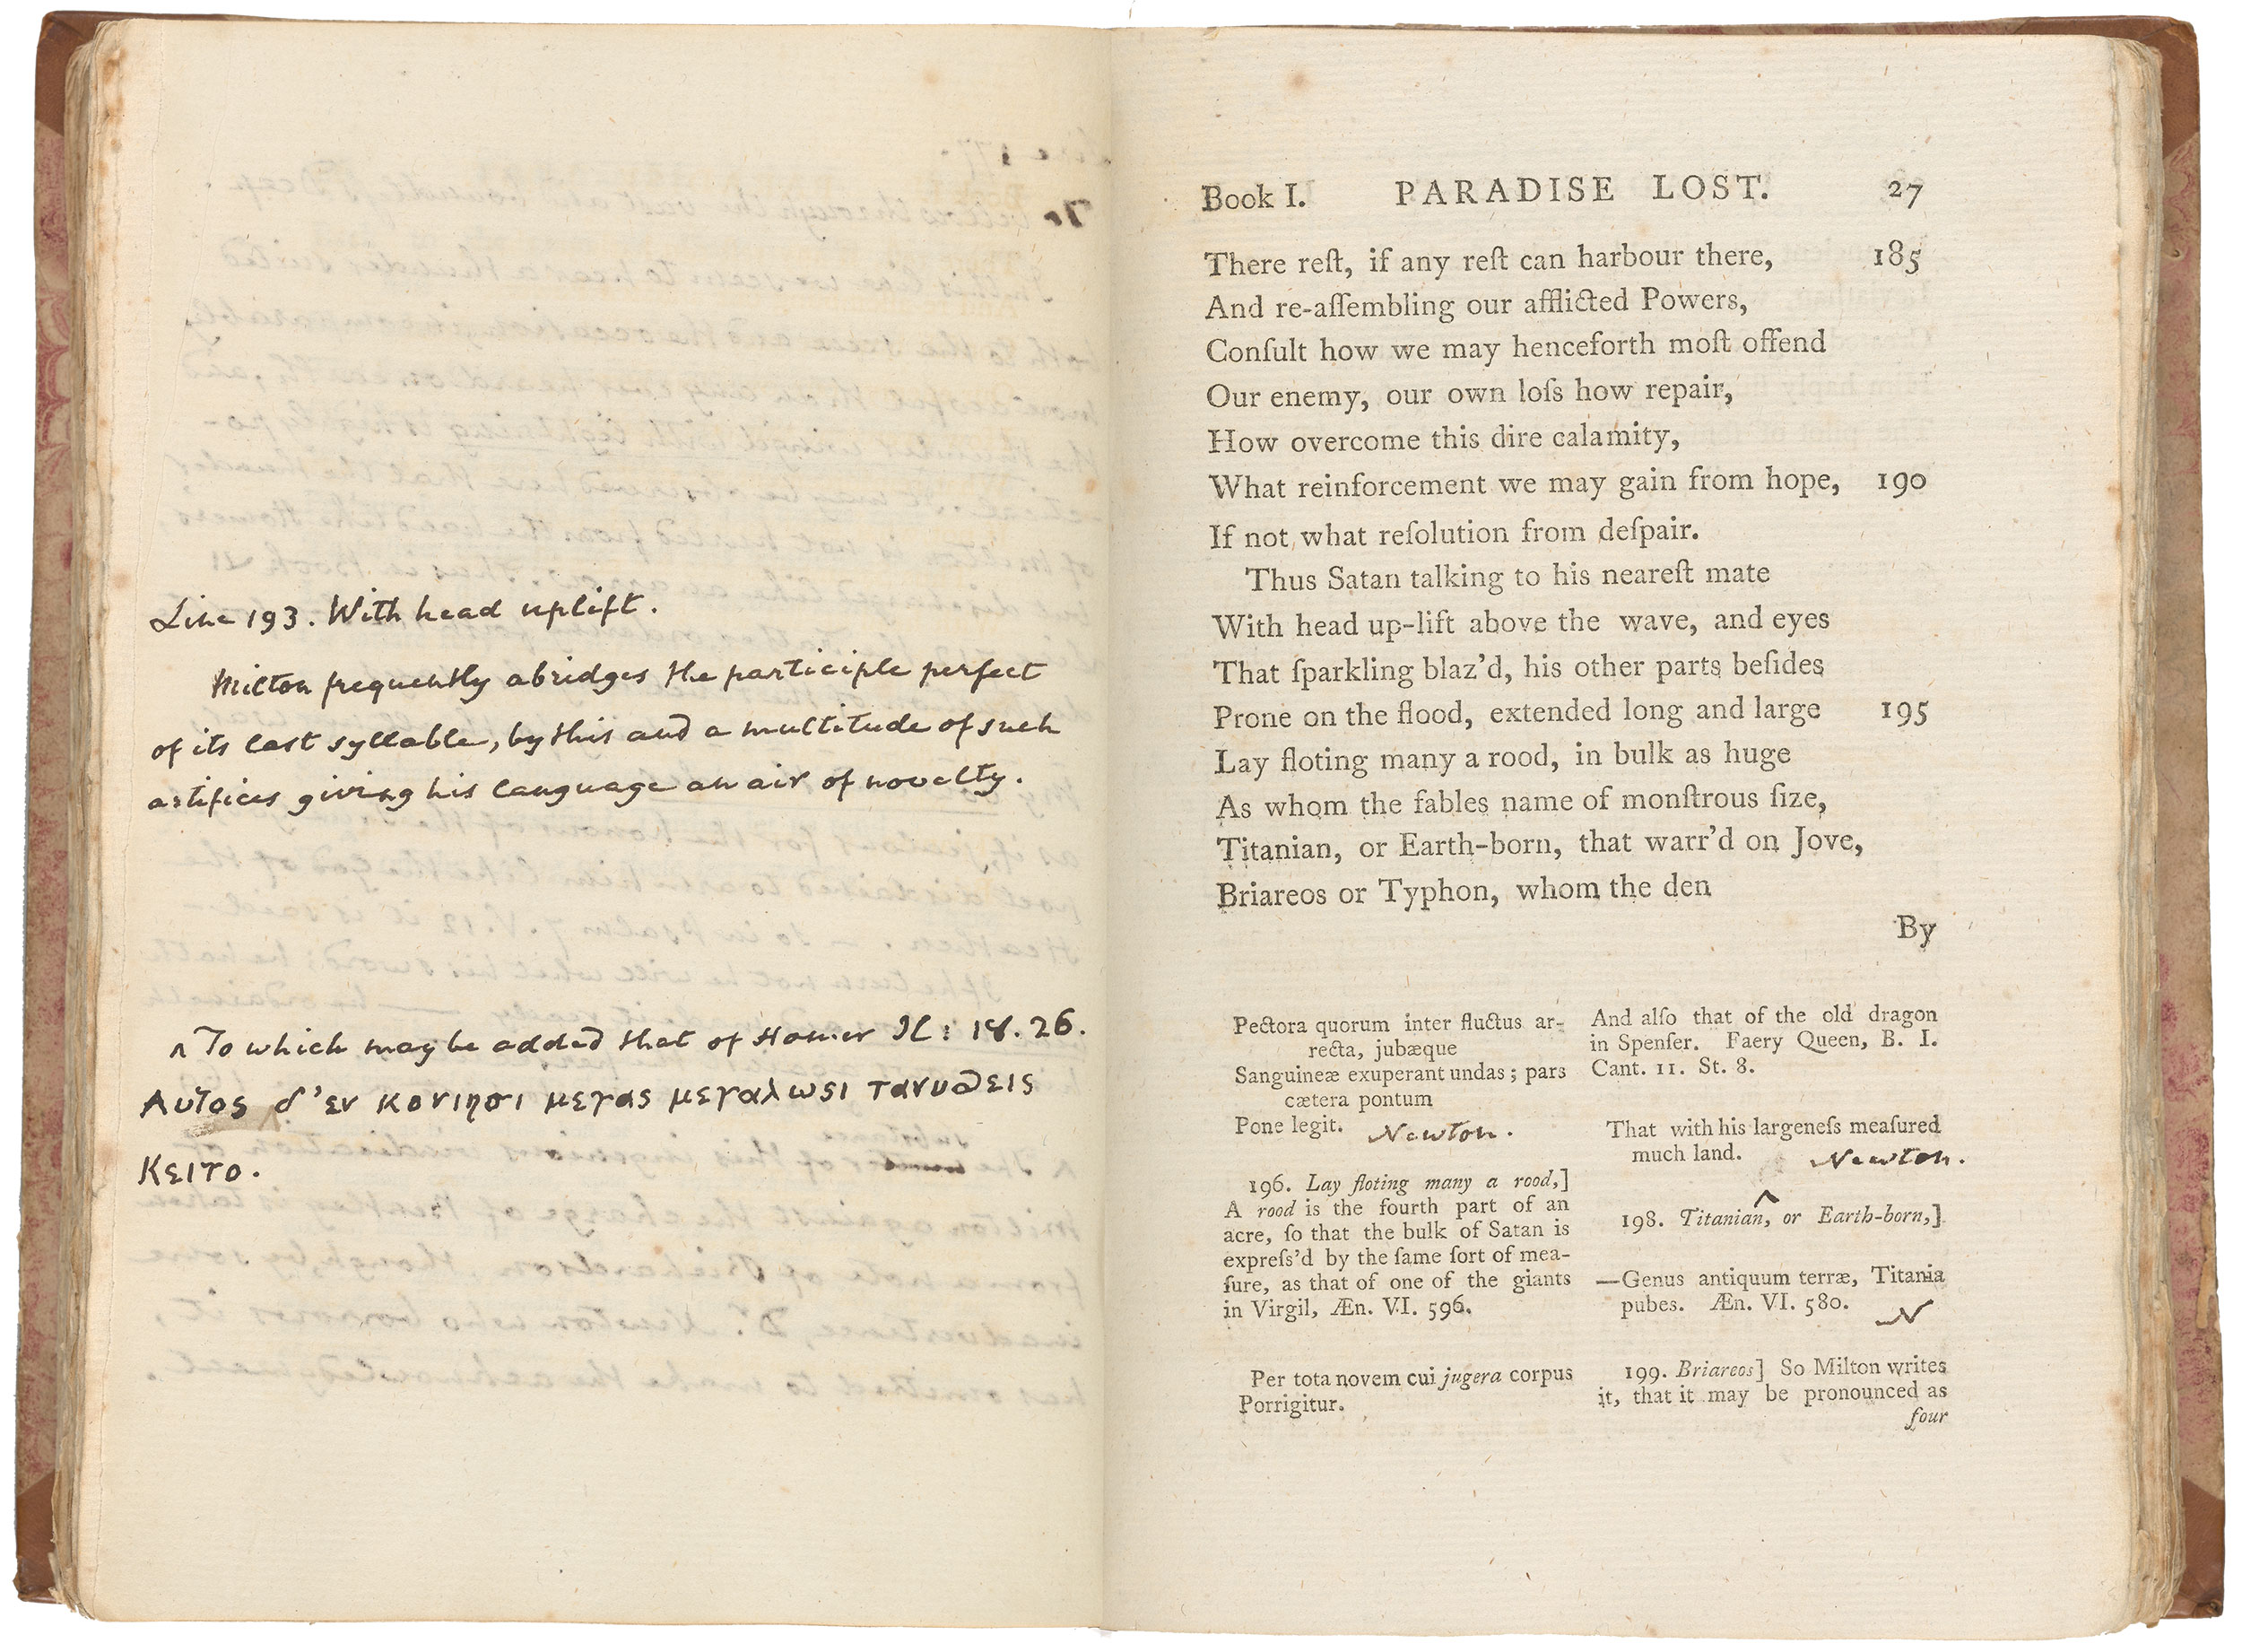 Line 193. With head uplift.
Milton frequently abridges the participle perfect
of its last syllable, by this and a multitude of such
artifices giving his language an air of novelty.
^ To which may be added that of Homer Il: 18. 26.
Αυτος δ'εν κονιησι μεγας μεγαλωσι τανυσθεις
Κειτο.
Book I. PARADISE LOST. 27
There reſt, if any reſt can harbour there, 185
And re-aſſembling our afflicted Powers,
Conſult how we may henceforth moſt offend
Our enemy, our own loſs how repair,
How overcome this dire calamity,
What reinforcement we may gain from hope, 190
If not what reſolution from deſpair.
Thus Satan talking to his neareſt mate
With head up-lift above the wave, and eyes
That ſparkling blaz'd, his other parts beſides
Prone on the flood, extended long and large 195
Lay floting many a rood, in bulk as huge
As whom the fables name of monſtrous ſize,
Titanian, or Earth-born, that warr'd on Jove,
Briareos or Typhon, whom the den
By
Pectora quorum inter fluctus ar-
recta, jubæque
Sanguineæ exuperant undas; pars
cætera pontum
Pone legit. Newton.
196. Lay floting many a rood,]
A rood is the fourth part of an
acre, ſo that the bulk of Satan is
expreſs'd by the ſame ſort of mea-
ſure, as that of one of the giants
in Virgil, Æn. VI. 596.
Per tota novem cui jugera corpus
Porrigitur.
And alſo that of the old dragon
in Spenſer. Faery Queen, B. I.
Cant. 11. St. 8.
That with his largeneſs meaſured
much land. Newton.
^
198. Titanian, or Earth-born,]
—Genus antiquum terræ, Titania
pubes. Æn. VI. 580. N
199. Briareos] So Milton writes
it, that it may be pronounced as
four